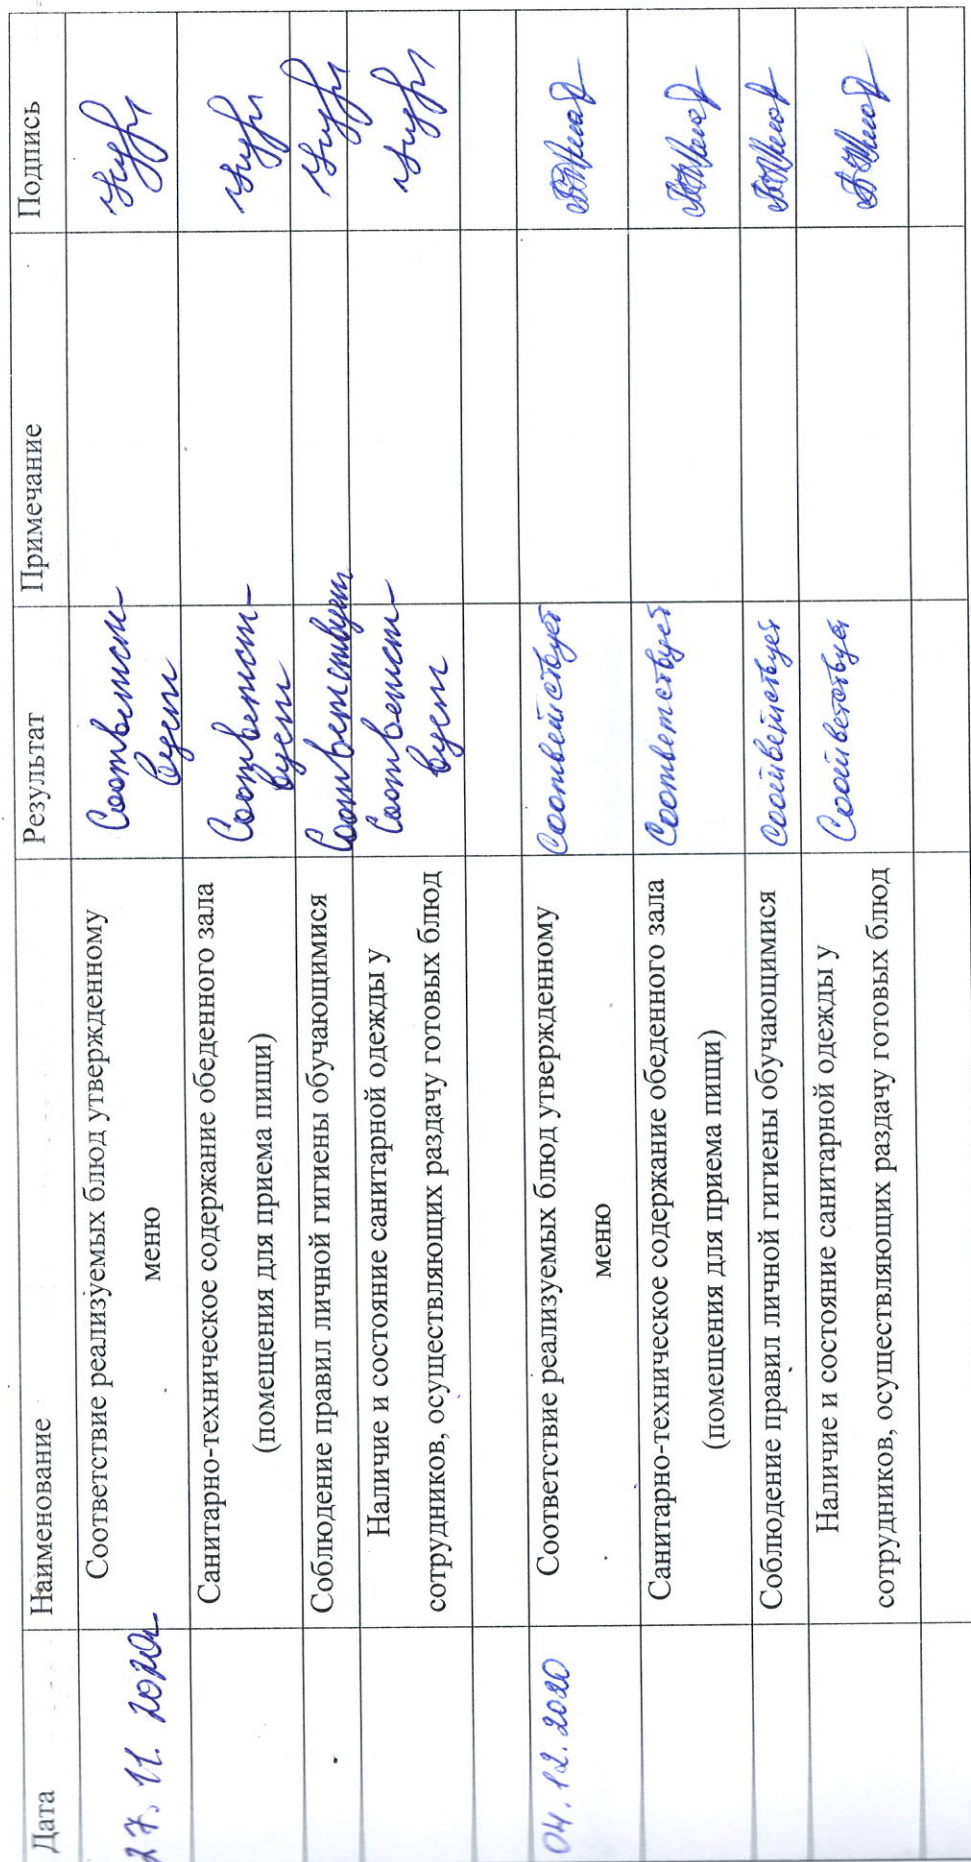 Дата Наименование Результат Примечание Подпись
27. 11. 2020г Соответствие реализуемых блюд утвержденному Соответст-
меню вует
Санитарно-техническое содержание обеденного зала Соответст-
(помещения для приема пищи) вует
Соблюдение правил личной гигиены обучающимися Соответствует
Наличие и состояние санитарной одежды у Соответст-
сотрудников, осуществляющих раздачу готовых блюд вует
04. 12. 2020 Соответствие реализуемых блюд утвержденному Соответствует
меню
Санитарно-техническое содержание обеденного зала Соответствует
(помещения для приема пищи)
Соблюдение правил личной гигиены обучающимися Соответствует
Наличие и состояние санитарной одежды у Соответствует
сотрудников, осуществляющих раздачу готовых блюд